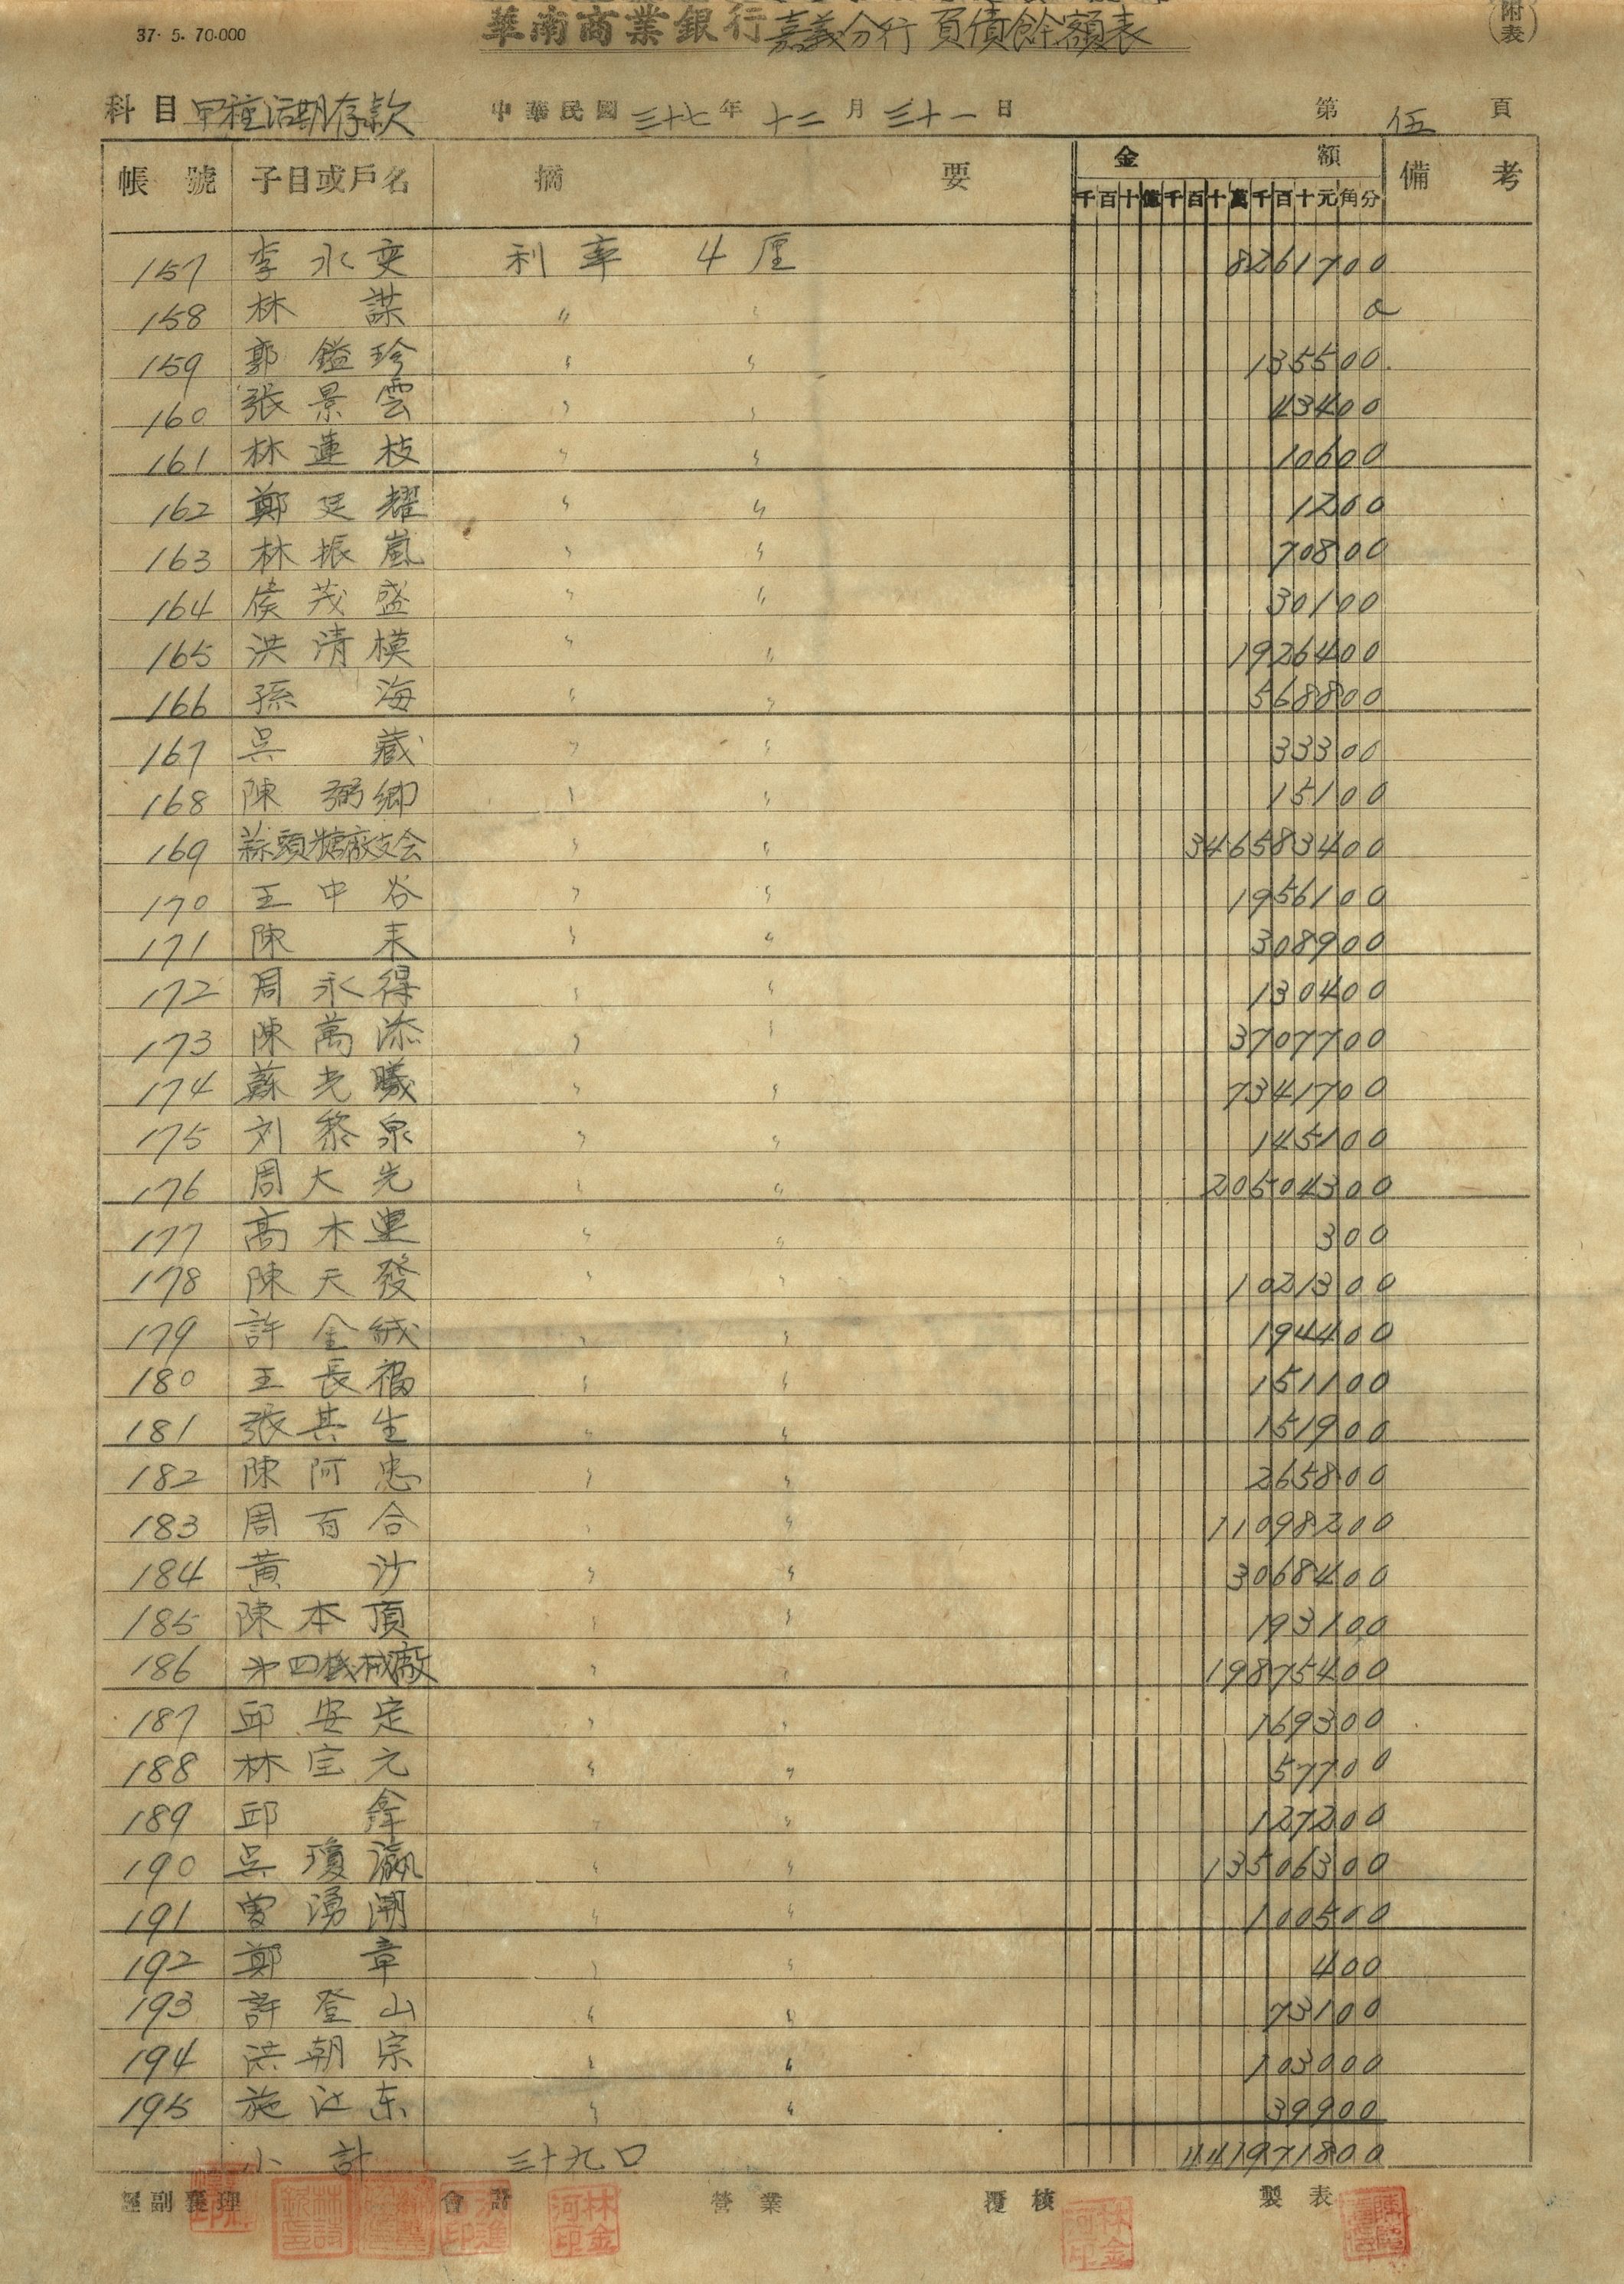 37. 5. 70.000
華南商業銀行嘉義分行負債餘額表
(附表)
科目 甲種活期存款 中華民國三十七年十二月三十一日 第伍頁
帳號 子目或戶名 摘要 金額 備考
千百十億千百十萬千百十元角分
157 李永奕 利率 4厘 8261700
158 林謀 〃 〃 0
159 郭鎰珍 〃 〃 135500
160 張景雲 〃 〃 43400
161 林蓮枝 〃 〃 10600
162 鄭廷耀 〃 〃 1200
163 林振嵐 〃 〃 70800
164 侯茂盛 〃 〃 30100
165 洪清模 〃 〃 1926400
166 孫海 〃 〃 568800
167 吳藏 〃 〃 33300
168 陳弼卿 〃 〃 15100
169 蒜頭糖廠支会 〃 〃 346583400
170 王中谷 〃 〃 1956100
171 陳耒 〃 〃 308900
172 周永得 〃 〃 130400
173 陳萬添 〃 〃 3707700
174 蘇光曦 〃 〃 7341700
175 刘黎泉 〃 〃 145100
176 周大先 〃 〃 20504300
177 髙木豊 〃 〃 300
178 陳天發 〃 〃 1021300
179 許金絨 〃 〃 194400
180 王長福 〃 〃 151100
181 張其生 〃 〃 151900
182 陳阿忠 〃 〃 265800
183 周百合 〃 〃 11098200
184 黄沙 〃 〃 3068400
185 陳本頂 〃 〃 193100
186 第四機械廠 〃 〃 19875400
187 邱安定 〃 〃 169300
188 林宝元 〃 〃 57700
189 邱鋒 〃 〃 127200
190 吳瓊瀛 〃 〃 13506300
191 曾湧潮 〃 〃 100500
192 鄭章 〃 〃 400
193 許登山 〃 〃 73100
194 洪朝宗 〃 〃 103000
195 施江东 〃 〃 39900
小計 三十九口 441971800
經副襄理 會計 營業 覆核 製表
林金河印
林金河印